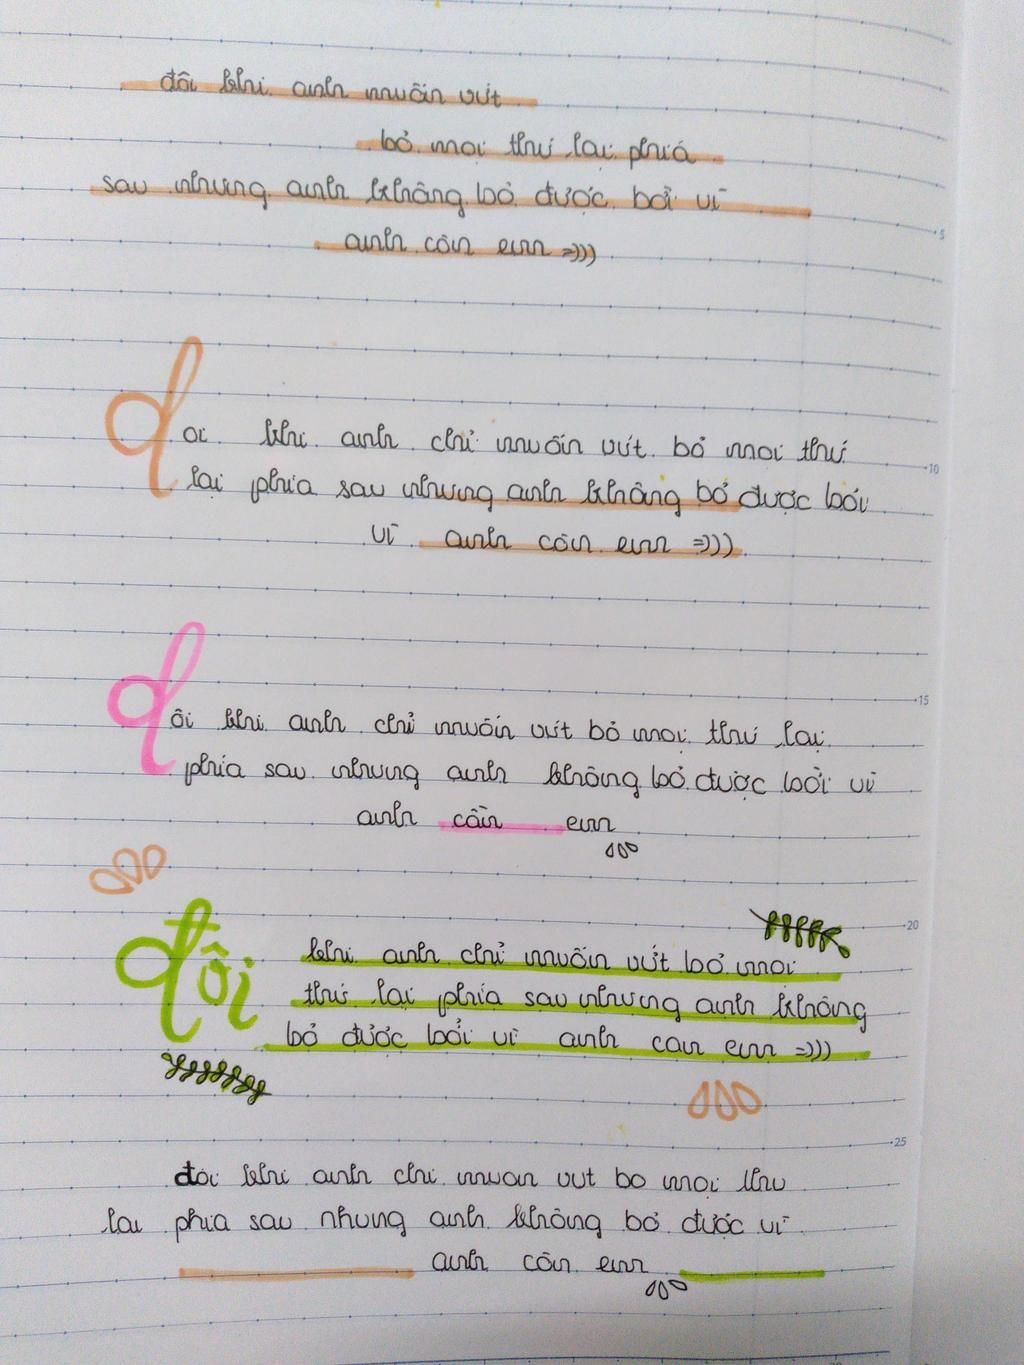 đôi khi anh muốn vứt
bỏ mọi thứ lại phía
sau nhưng anh không bỏ được bởi vì
anh cần em =)))
5
đoi khi anh chỉ muốn vứt bỏ mọi thứ
10
lại phía sau nhưng anh không bỏ được bởi
vì anh cần em =)))
15
đôi khi anh chỉ muốn vứt bỏ mọi thứ lại
phía sau nhưng anh không bỏ được bởi vì
anh cần em
20
đôi khi anh chỉ muốn vứt bỏ mọi
thứ lại phía sau nhưng anh không
bỏ được bởi vì anh can em =)))
25
đôi khi anh chi muon vut bo mọi thu
lai phia sau nhung anh không bỏ được vì
anh cần em